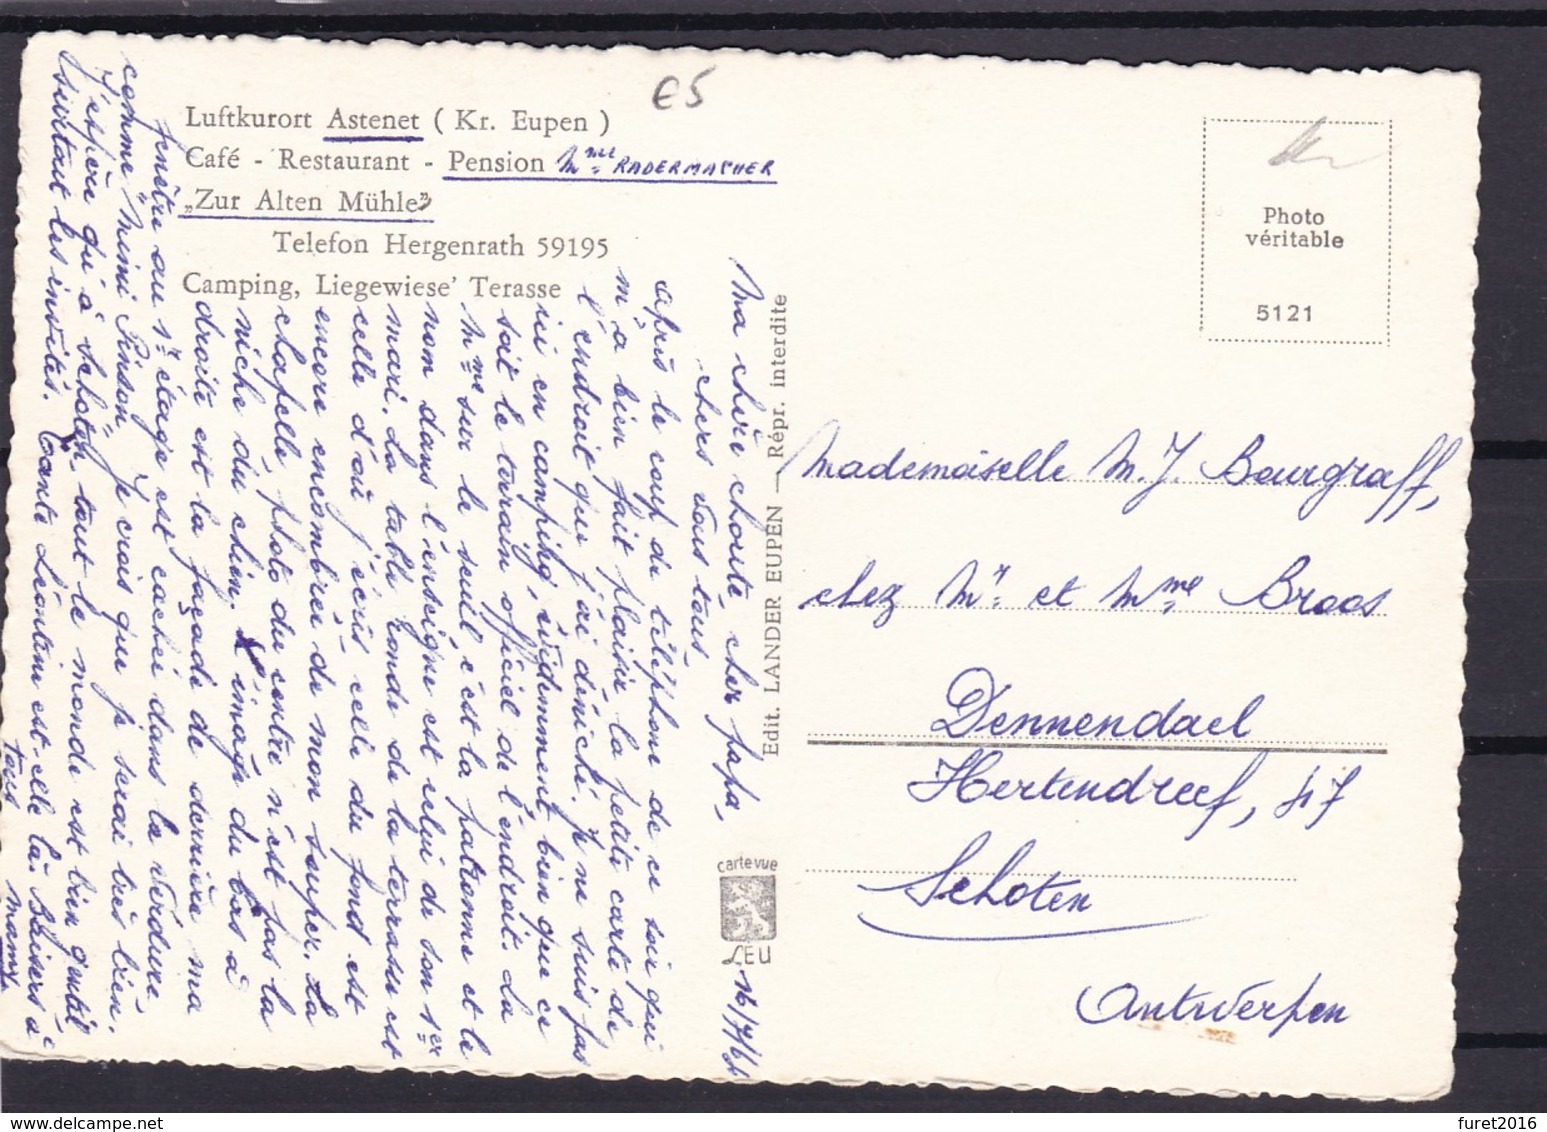 €5
Luftkurort Astenet ( Kr. Eupen )
Café - Restaurant - Pension Mme RADERMACHER
„Zur Alten Mühle"
Telefon Hergenrath 59195
Camping, Liegewiese' Terasse
16/7/61
Ma chère choute, cher papa,
chers vous tous,
après le coup de téléphone de ce soir qui
m'a bien fait plaisir la petite carte de
l'endroit que j'ai déniché. Je ne suis pas
ici en camping, évidemment bien que ce
soit le terrain officiel de l'endroit. La
Mme sur le seuil c'est la patronne et le
nom dans l'enseigne est celui de son 1er
mari. La table ronde de la terrasse est
celle d'où j'écris celle du fond est
encore encombrée de mon souper. La
chapelle, photo du centre n'est pas la
niche du chien. L'image du bas à
droite est la façade de derrière ma
fenêtre au 1r étage est cachée dans la verdure
comme "Mimi Pinson" Je crois que je serai très bien.
J'espère qu'à Schoten tout le monde est bien gentil
surtout les invités. Tante Léontine est-elle là. Baisers à
tous
Mamy
Edit. LANDER EUPEN — Répr. interdite
carte vue
LEU
Photo
véritable
5121
Mademoiselle M. J. Bourgraff,
chez Mr et Mme Broos
Dennendael
Hertendreef, 47
Schoten
Antwerpen
furet2016